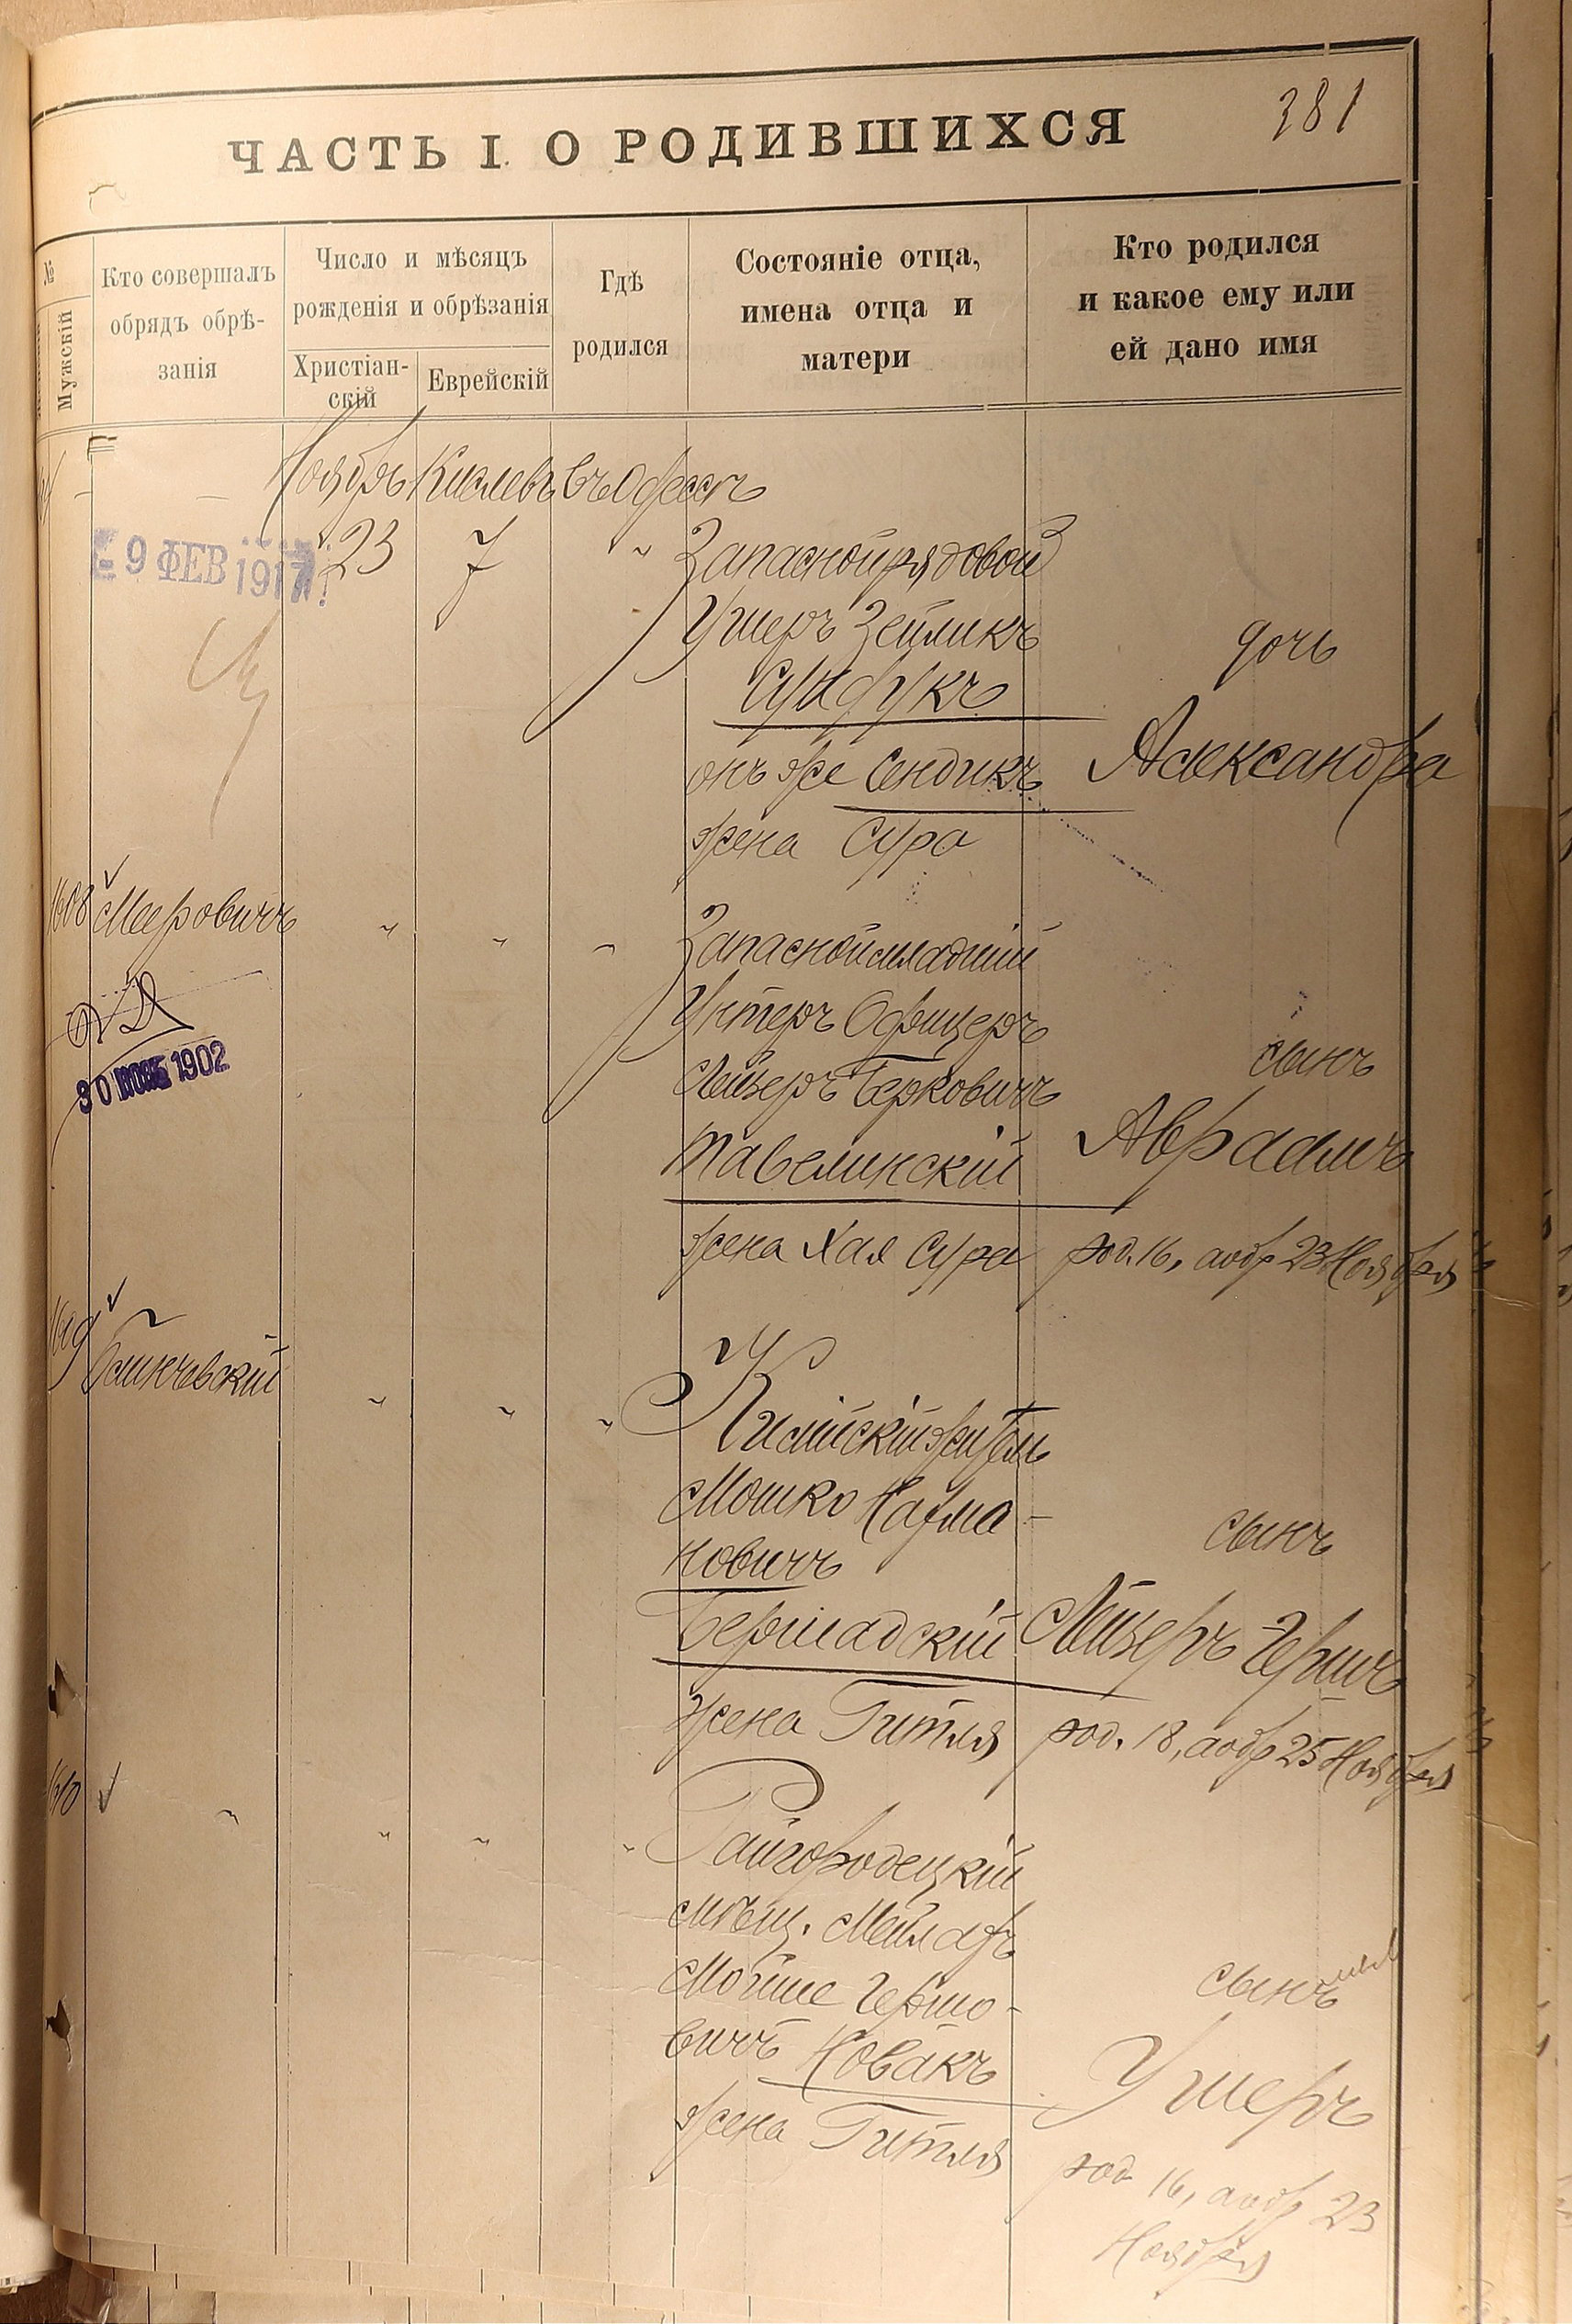 381
ЧАСТЬ I. О РОДИВШИХСЯ
№
Мужскій
Кто совершалъ
обрядъ обрѣ-
занія
Число и мѣсяцъ
рожденія и обрѣзанія
Христіан-
скій
Еврейскій
Гдѣ
родился
Состояніе отца,
имена отца и
матери
Кто родился
и какое ему или
ей дано имя
Ноябрь Кислевъ въ Одессѣ
9 ФЕВ 1917
23 7 " Запасной рядовой
Ушеръ Зейликъ
Сундукъ
дочь
онъ же Сендикъ
Александра
жена Сура
1608 Меировичъ " " " Запасной младшій
Унтеръ Офицеръ
сынъ
30 1902
Лейзеръ Берковичъ
Тавелинскій
Авраамъ
жена Хая Сура род. 16, а обр 23 Ноября
1609
" " " Килійскій житель
Мошко Нахма-
новичъ
сынъ
Бершадскій Лейзеръ Гершъ
жена Гитля род. 18, а обр 25 Ноября
1610 " " " " Райгородецкій
мѣщ. Мейлахъ
Мойше Гершо-
сынъ
вичъ Новакъ
Ушеръ
жена Гитля
род 16, а обр 23
Ноября